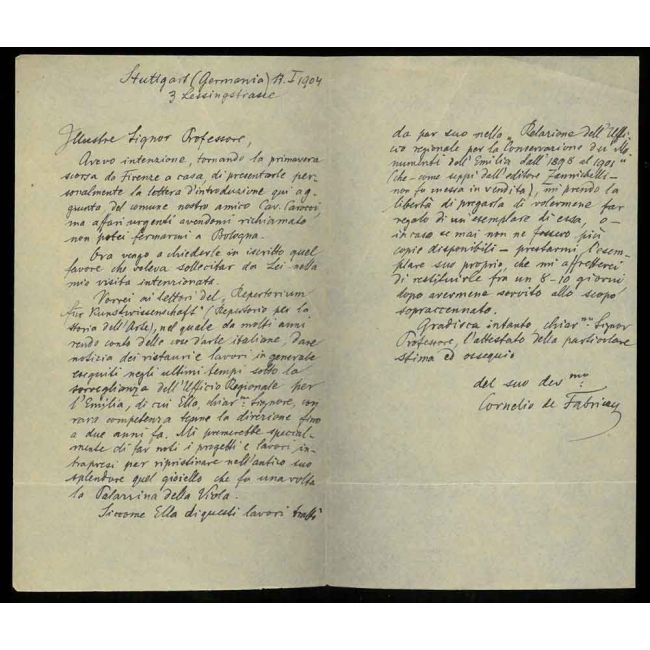 Stuttgart (Germania) 17. I 1904
3 Lessingstrasse
Illustre Signor Professore,
Avevo intenzione, tornando la primavera
scorsa da Firenze a casa, di presentarle per-
sonalmente la lettera d'introduzione qui ag-
giunta del comune nostro amico Cav. Carocci,
ma affari urgenti avendomi richiamato
non potei fermarmi a Bologna.
Ora vengo a chiederle in iscritto quel
favore che voleva sollecitar da Lei nella
mia visita intenzionata.
Vorrei ai lettori del „Repertorium
für Kunstwissenschaft" (Repertorio per la
storia dell'Arte), nel quale da molti anni
rendo conto delle cose d'arte italiane, dare
notizia dei ristauri e lavori in generale
eseguiti negli ultimi tempi sotto la
sorveglianza dell'Ufficio Regionale per
l'Emilia, di cui Ella, chiar.mo Signore, con
rara competenza tenne la direzione fino
a due anni fa. Mi premerebbe special-
mente di far noti i progetti e lavori in-
trapresi per ripristinare nell'antico suo
splendore quel gioiello che fu una volta
la Palazzina della Viola.
Siccome Ella di questi lavori trattò
da par suo nella „Relazione dell'Uffi-
cio regionale per la Conservazione dei Mo-
numenti dell'Emilia dall' 1898 al 1901"
(che – come seppi dell'editore Zannichelli –
non fu messa in vendita), mi prendo la
libertà di pregarla di volermene far
regalo di un esemplare di essa, o –
in caso se mai non ne fossero più
copie disponibili – prestarmi l'esem-
plare suo proprio, che mi affretterei
di restituirle fra un 8-10 giorni
dopo avermene servito allo scopo
sopraccennato.
Gradisca intanto, chiar.mo Signor
Professore, l'attestato della particolare
stima ed ossequio
del suo dev.mo
Cornelio de Fabriczy